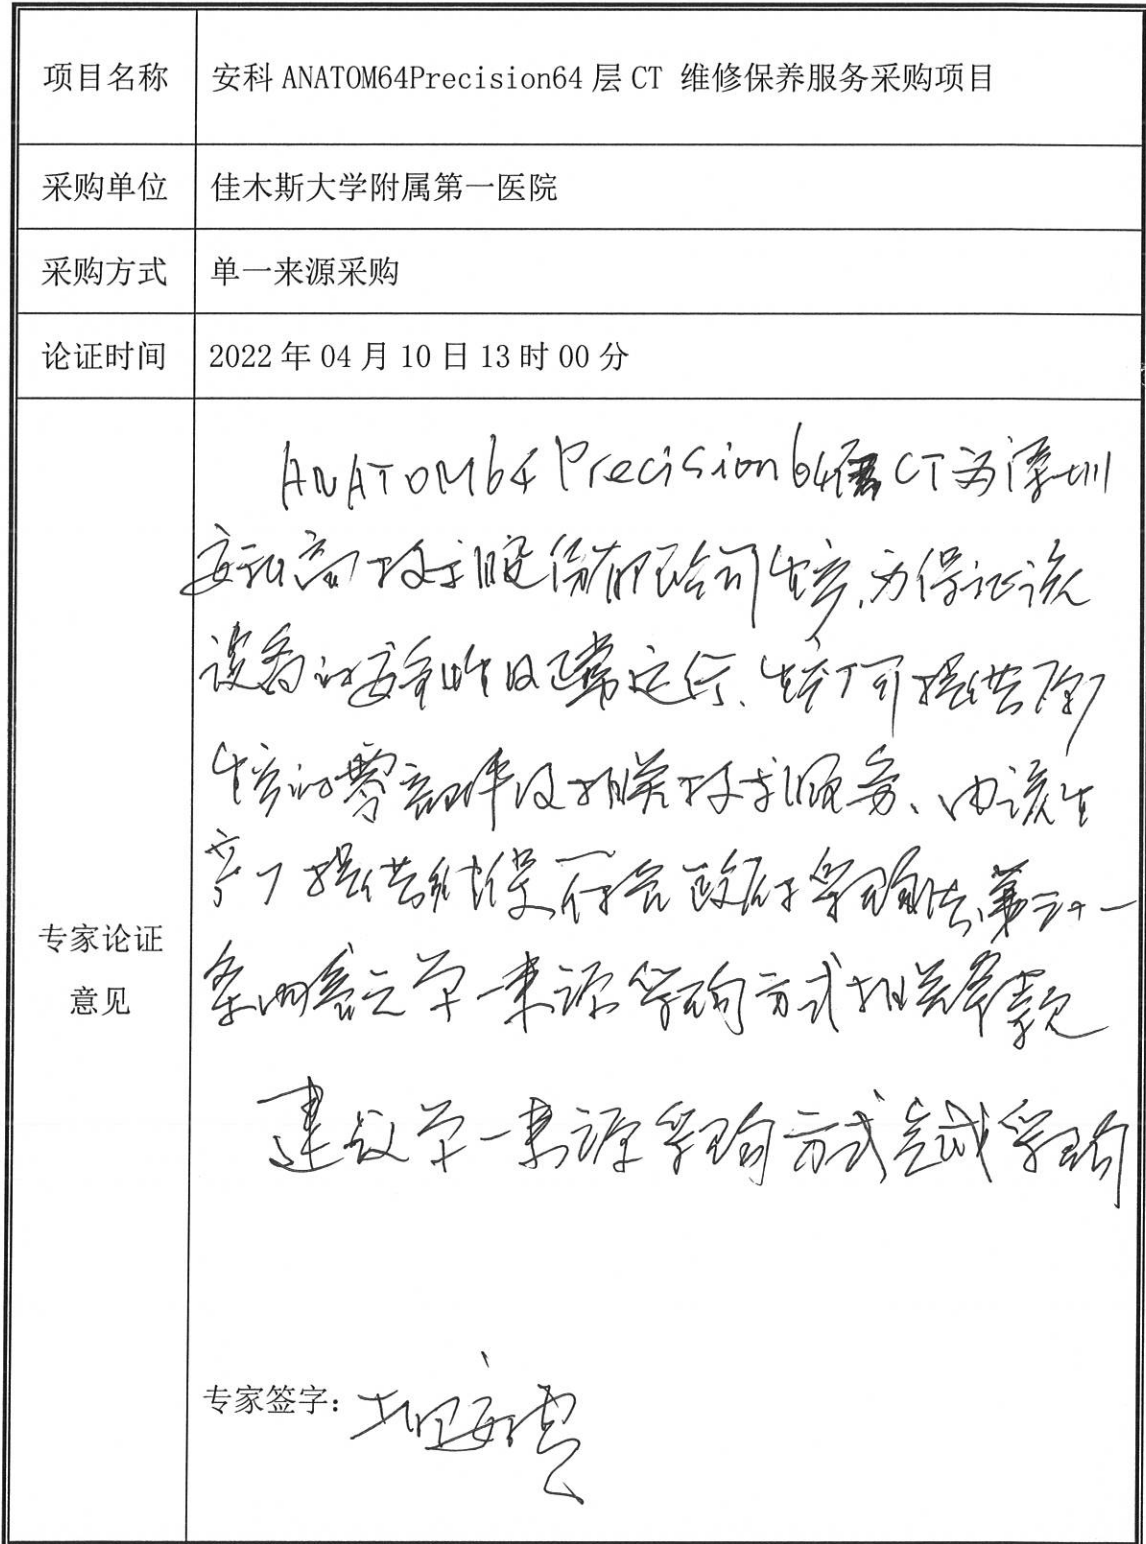 项目名称
安科 ANATOM64Precision64 层 CT 维修保养服务采购项目
采购单位
佳木斯大学附属第一医院
采购方式
单一来源采购
论证时间
2022 年 04 月 10 日 13 时 00 分
专家论证
意见
ANATOM64 Precision 64层 CT 为深圳
安科高技术股份有限公司生产,为保证该
设备的安全性及正常运行、生产厂可提供所
生产的零部件及相关技术服务、由该生
产厂提供维保符合政府采购法第三十一
条内容之单一来源采购方式相关条款
建议单一来源采购方式完成采购
专家签字: